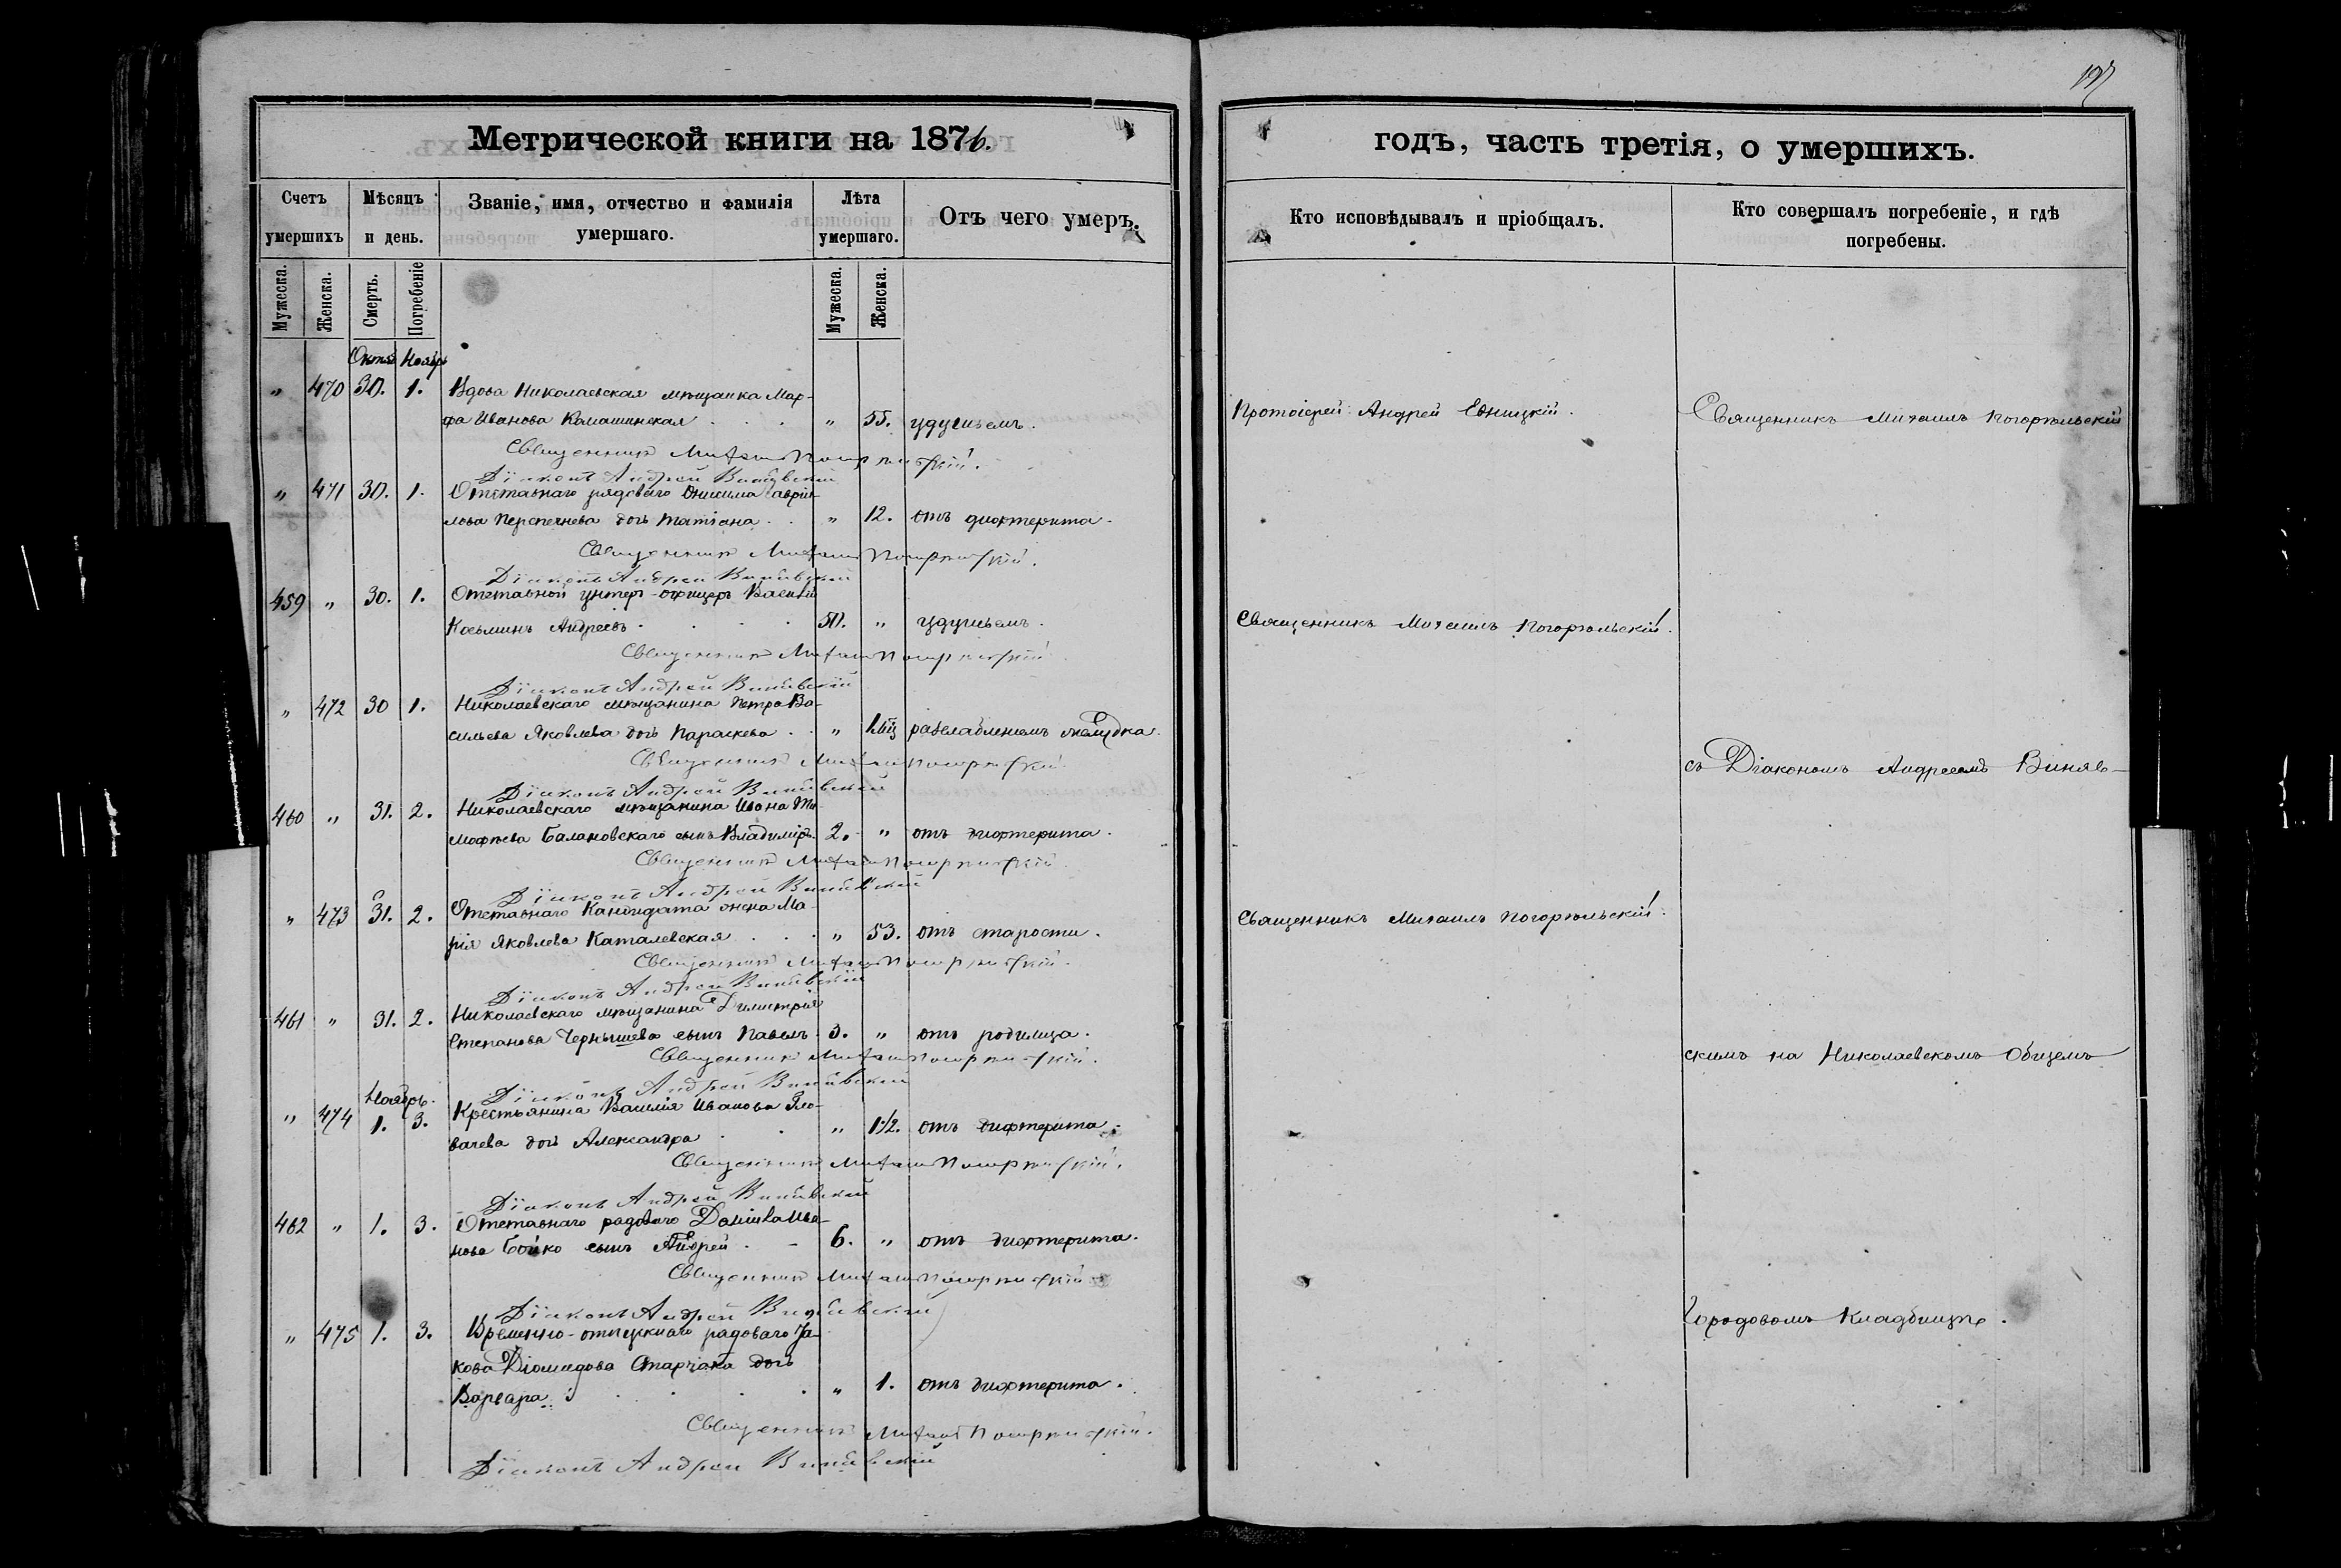 197
Метрической книги на 1876.
годъ, часть третія, о умершихъ.
Счетъ умершихъ
Мѣсяцъ и день.
Званіе, имя, отчество и фамилія умершаго.
Лѣта умершаго.
Отъ чего умеръ.
Кто исповѣдывалъ и пріобщалъ.
Кто совершалъ погребеніе, и гдѣ погребены.
Мужеска.
Женска.
Смерть.
Погребеніе
Мужеска.
Женска.
Октяб Ноябрь
" 470 30. 1. Вдова Николаевская мѣщанка Мар-
фа Иванова Камашинская . . . " 55. удушьемъ.
Протоіерей Андрей Едницкій.
Священникъ Михаилъ Погорѣльскій
Священникъ Михаилъ Погорѣльскій.
Діаконъ Андрей Винявскій
" 471 30. 1. Отставнаго рядоваго Онисима Гаврі-
лова Перепечнева дочь Татіана . . " 12. отъ дифтерита.
Священникъ Михаилъ Погорѣльскій.
Діаконъ Андрей Винявскій
459 " 30. 1. Отставной унтеръ-офицеръ Василій
Косьминъ Андреевъ . . . . 50. " удушьемъ.
Священникъ Михаилъ Погорѣльскій.
Священникъ Михаилъ Погорѣльскій
Діаконъ Андрей Винявскій
" 472 30 1. Николаевскаго мѣщанина Петра Ва-
сильева Яковлева дочь Параскева . . " разслабленіемъ желудка.
Священникъ Михаилъ Погорѣльскій
съ Діакономъ Андреемъ Виняв-
Діаконъ Андрей Винявскій
460 " 31. 2. Николаевскаго мѣщанина Ивана Ти-
мофѣева Балановскаго сынъ Владиміръ. 2. " отъ дифтерита.
Священникъ Михаилъ Погорѣльскій
Діаконъ Андрей Винявскій
" 473 31. 2. Отставнаго Кандидата жена Ма-
рія Яковлева Каталевская . . . " 53. отъ старости.
Священникъ Михаилъ Погорѣльскій.
Священникъ Михаилъ Погорѣльскій.
Діаконъ Андрей Винявскій
461 " 31. 2. Николаевскаго мѣщанина Димитрія
Степанова Чернышева сынъ Павелъ. 3. " отъ родимца.
Священникъ Михаилъ Погорѣльскій.
скимъ на Николаевскомъ Общемъ
Діаконъ Андрей Винявскій
Ноябрь.
" 474 1. 3. Крестьянина Василія Иванова
вачева дочь Александра . . " 1½. отъ дифтерита.
Священникъ Михаилъ Погорѣльскій.
Діаконъ Андрей Винявскій
462 " 1. 3. Отставнаго рядоваго Даніила Ива-
нова Бойко сынъ Андрей . - 6. " отъ дифтерита.
Священникъ Михаилъ Погорѣльскій
Діаконъ Андрей Винявскій
Городовомъ Кладбищѣ.
" 475 1. 3. Временно-отпускнаго рядоваго Іа-
кова Діомидова Старчака дочь
Варвара . . . . " 1. отъ дифтерита.
Священникъ Михаилъ Погорѣльскій.
Діаконъ Андрей Винявскій